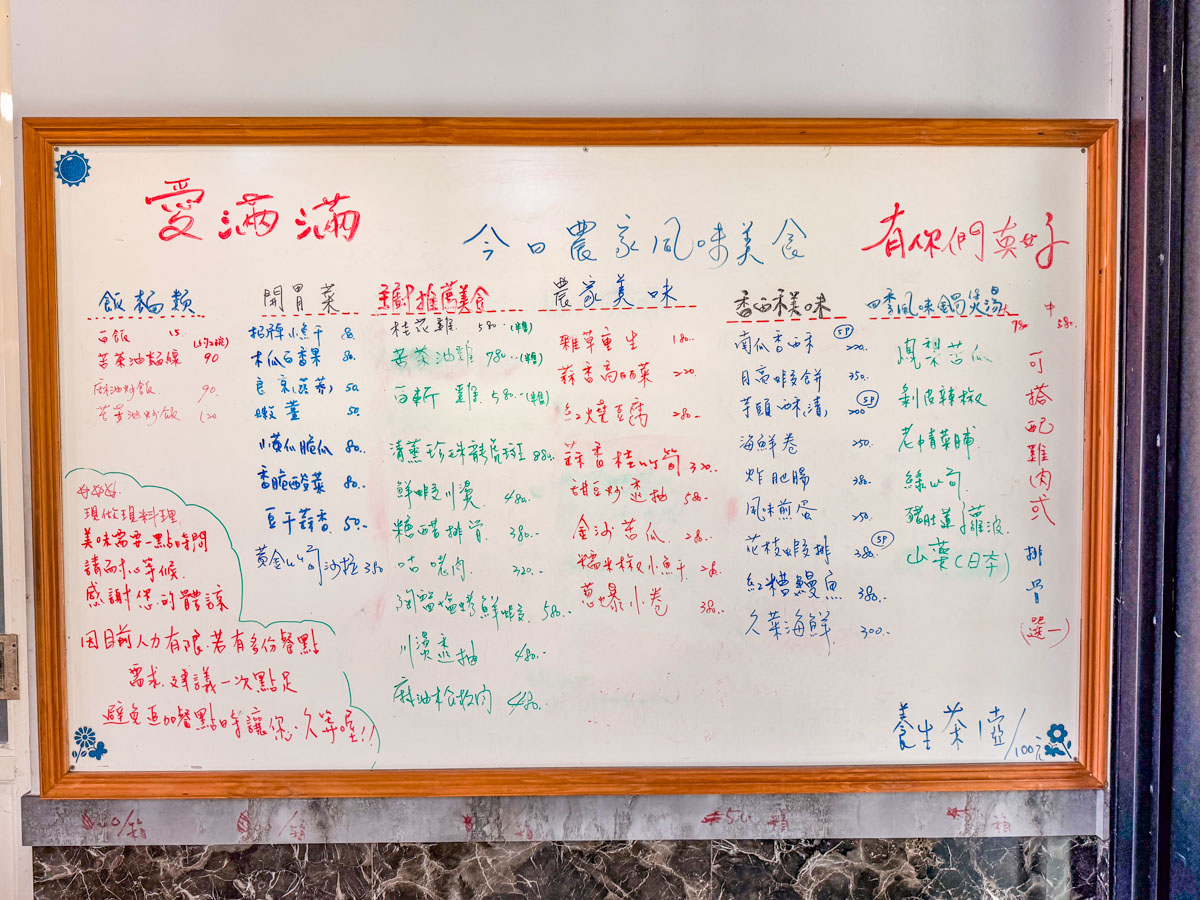 愛滿滿
今日農家風味美食
有你們真好
飯麵類
白飯 15.
苦茶油麵線 90
麻油炒飯 90.
苦茶油炒飯 120
開胃菜
招牌小魚干 80.
木瓜百香果 80.
良京(蒟蒻) 50.
嫩薑 50.
小黃瓜脆瓜 80.
香脆酸菜 80.
豆干蒜香 50.
黃金山筍沙拉 380
主廚推薦美食
桂花雞 580.(半隻)
苦茶油雞 780.(半隻)
白斬雞 580.(半隻)
清蒸珍珠龍虎斑 880.
鮮蝦川燙 480.
糖醋排骨 380.
咕咾肉 320.
陶甕塩烤鮮蝦 580.
川燙透抽 480.
麻油松板肉 480.
農家美味
雜草重生 180.
蒜香高麗菜 220.
紅燒豆腐 280.
蒜香桂竹筍 320.
甜豆炒透抽 580.
金沙苦瓜 280.
糯米椒小魚干 280.
蔥爆小卷 380.
香酥美味
南瓜香酥 5P 200.
月亮蝦餅 350.
芋頭酥 5P 200
海鮮卷 250.
炸肥腸 380.
風味煎蛋 250.
花枝蝦排 5P 280.
紅糟鰻魚 380.
久菜海鮮 300.
四季風味鍋煲湯 大 780 中 580.
鳳梨苦瓜
剝皮辣椒
老情菜脯
綠竹筍
豬肚蓮子蘿波
山藥(日本)
可搭配雞肉或排骨(選一)
好好好.
現做現料理.
美味需要一點時間
請耐心等候.
感謝您的體諒
因目前人力有限.若有多份餐點
需求.建議一次點足
避免追加餐點時讓您久等喔!!
養生茶1壺/100元